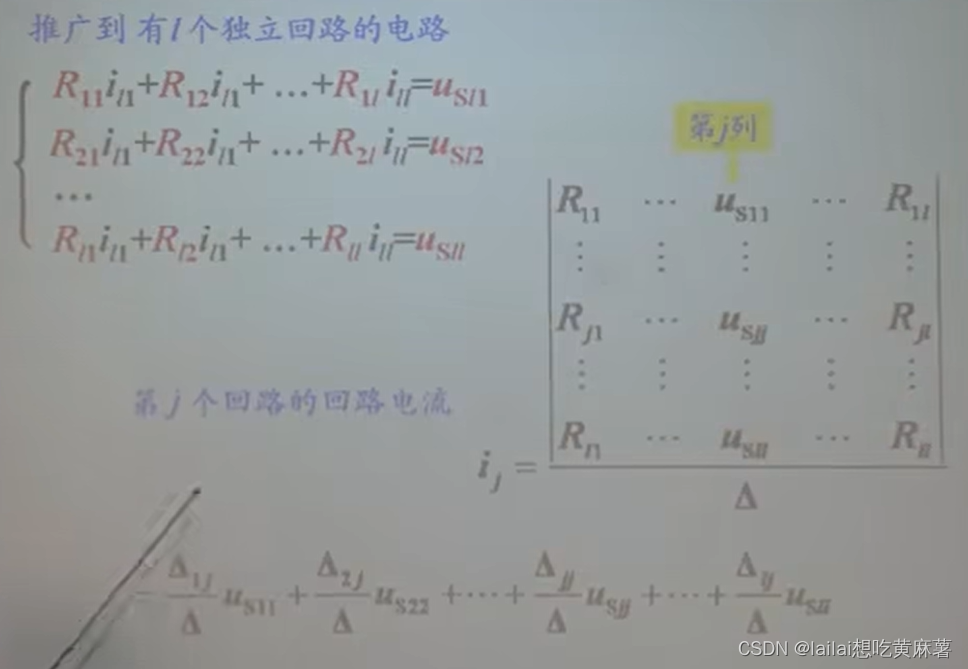 推广到 有l个独立回路的电路
R11il1+R12il1+ …+R1l ill=uSl1
R21il1+R22il1+ …+R2l ill=uSl2
…
Rl1il1+Rl2il1+ …+Rll ill=uSll
第j列
R11 ⋯ uS11 ⋯ R1l
⋮ ⋮ ⋮ ⋮ ⋮
Rj1 ⋯ uSjj ⋯ Rjl
⋮ ⋮ ⋮ ⋮ ⋮
Rl1 ⋯ uSll ⋯ Rll
第j个回路的回路电流
ij =
Δ
Δ1j/Δ uS11 + Δ2j/Δ uS22 +⋯+ Δjj/Δ uSjj +⋯+ Δlj/Δ uSll
CSDN @lailai想吃黄麻薯